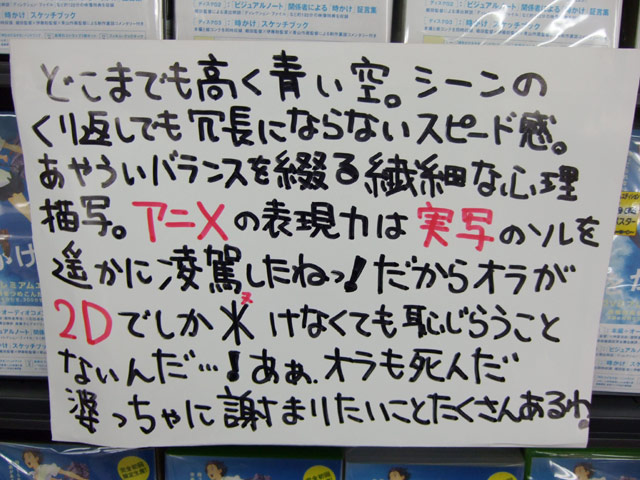 ディスク2:ビジュアルノート 関係者による「時かけ」証言集
ディスク3:「時かけ」スケッチブック
どこまでも高く青い空。シーンの
くり返しでも冗長にならないスピード感。
あやういバランスを綴る繊細な心理
描写。アニメの表現力は実写のソレを
遥かに凌駕したねっ!だからオラが
2Dでしか
ヌ
氺けなくても恥じらうこと
ないんだ…!あぁ、オラも死んだ
婆っちゃに謝まりたいことたくさんあるわ。